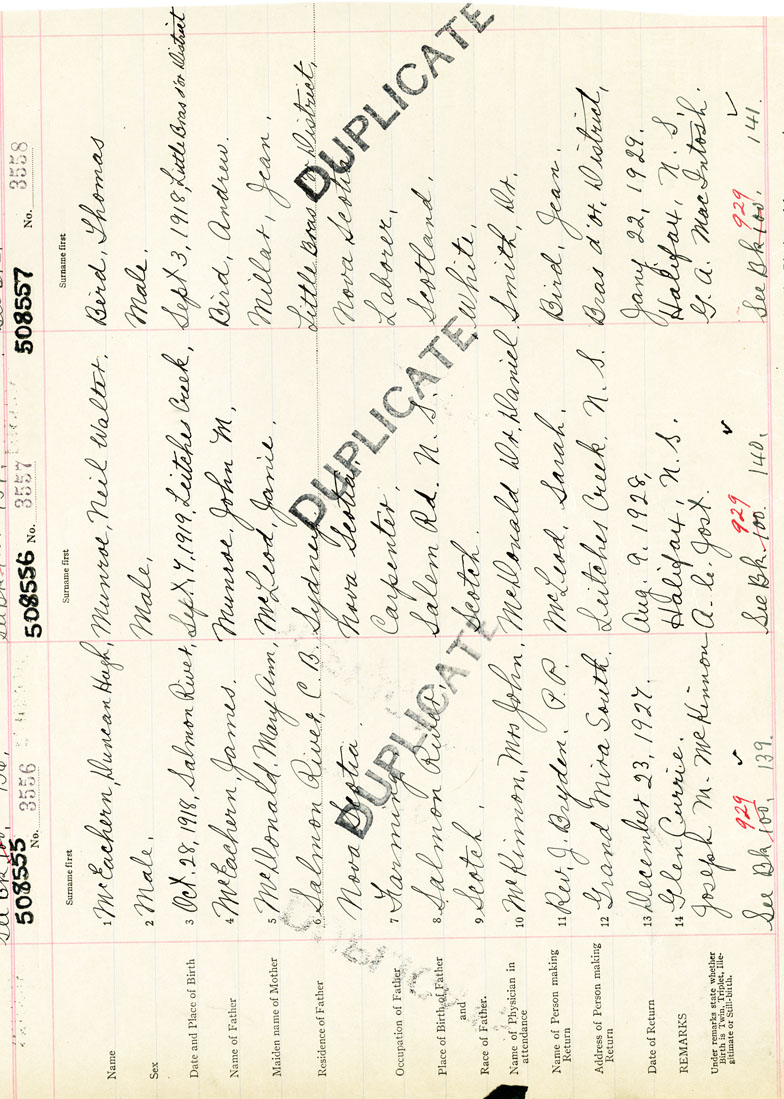 508555
No. 3556
Surname first
Name
1 McEachern, Duncan Hugh,
Sex
2 Male.
Date and Place of Birth
3 Oct. 28, 1918, Salmon River,
Name of Father
4 McEachern James.
Maiden name of Mother
5 McDonald, Mary Ann,
Residence of Father
6 Salmon River, C. B.
Nova Scotia.
Occupation of Father
7 Farming
Place of Birth of Father
8 Salmon River,
and
Race of Father.
9 Scotch.
Name of Physician in
attendance
10 McKinnon, Mrs John.
Name of Person making
Return
11 Rev. J. Bryden. P.P.
Address of Person making
Return
12 Grand Mira South.
Date of Return
13 December 23, 1927.
REMARKS
14 Glen Currie.
Joseph M. McKinnon
Under remarks state whether
Birth is Twin, Triplet, Ille-
gitimate or Still-birth.
929
See Bk 100, 139.
DUPLICATE
508556
No. 3557
Surname first
Munroe, Neil Walter.
Male,
Sept, 7, 1919, Leitches Creek,
Munroe, John M,
McLeod, Janie.
Sydney
Nova Scotia
Carpenter.
Salem Rd. N. S.
Scotch.
McDonald Dr. Daniel
McLeod, Sarah.
Leitches Creek. N. S.
Aug. 9. 1928,
Halifax, N. S.
A. C. Jost.
929
See Bk. 100. 140.
DUPLICATE
508557
No. 3558
Surname first
Bird, Thomas
Male.
Sept 3, 1918, Little Bras d'or District
Bird, Andrew.
Millar, Jean,
Little Bras d'or District,
Nova Scotia
Laborer,
Scotland,
White,
Smith, Dr.
Bird, Jean.
Bras d'or, District,
Jany 22, 1929.
Halifax, N. S,
G. A. MacIntosh.
929
See Bk 100. 141.
DUPLICATE